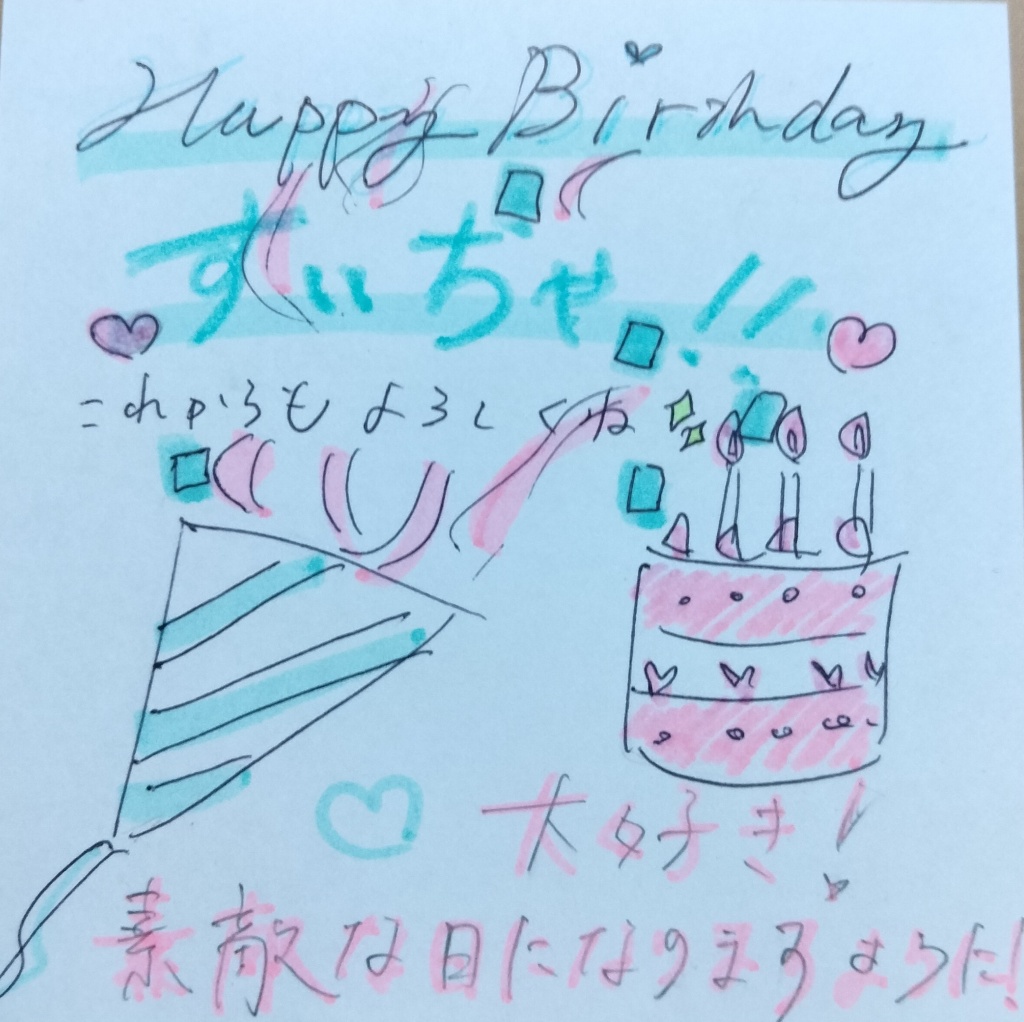 Happy Birthday
すいちゃ!!
これからもよろしくね
大好き!
素敵な日になりますように!